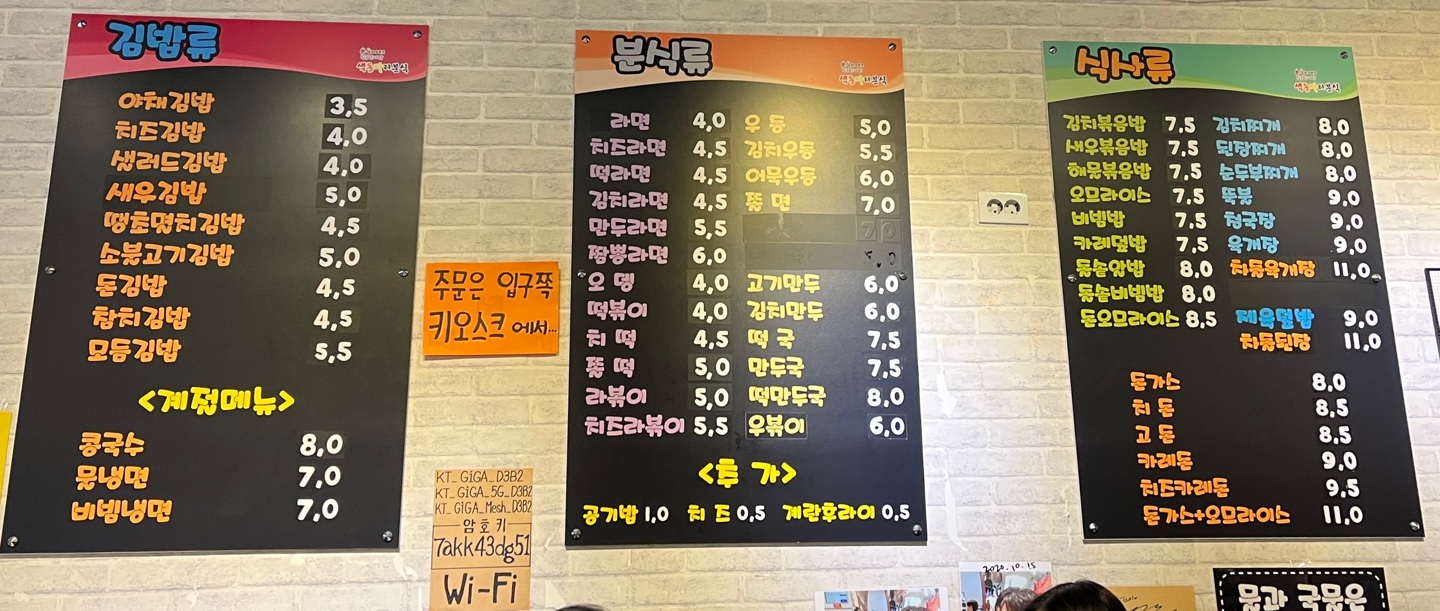 김밥류
색동저리분식
야채김밥 3,5
치즈김밥 4,0
샐러드김밥 4,0
새우김밥 5,0
땡초멸치김밥 4,5
소불고기김밥 5,0
돈김밥 4,5
참치김밥 4,5
모듬김밥 5,5
<계절메뉴>
콩국수 8,0
물냉면 7,0
비빔냉면 7,0
주문은 입구쪽
키오스크 에서...
KT_GiGA_D3B2
KT_GiGA_5G_D3B2
KT_GiGA_Mesh_D3B2
암호키
7akk43dg51
Wi-Fi
분식류
라면 4,0 우동 5,0
치즈라면 4,5 김치우동 5,5
떡라면 4,5 어묵우동 6,0
김치라면 4,5 쫄면 7,0
만두라면 5,5
짬뽕라면 6,0
오뎅 4,0 고기만두 6,0
떡볶이 4,0 김치만두 6,0
치떡 4,5 떡국 7,5
쫄떡 5,0 만두국 7,5
라볶이 5,0 떡만두국 8,0
치즈라볶이 5,5 우볶이 6,0
<추가>
공기밥 1,0 치즈 0,5 계란후라이 0,5
식사류
김치볶음밥 7,5 김치찌개 8,0
새우볶음밥 7,5 된장찌개 8,0
해물볶음밥 7,5 순두부찌개 8,0
오므라이스 7,5 뚝불 9,0
비빔밥 7,5 청국장 9,0
카레덮밥 7,5 육개장 9,0
돌솥알밥 8,0 차돌육개장 11,0
돌솥비빔밥 8,0
돈오므라이스 8,5 제육덮밥 9,0
차돌된장 11,0
돈가스 8,0
치돈 8,5
고돈 8,5
카레돈 9,0
치즈카레돈 9,5
돈가스+오므라이스 11,0
2020.10.15
물과 국물은